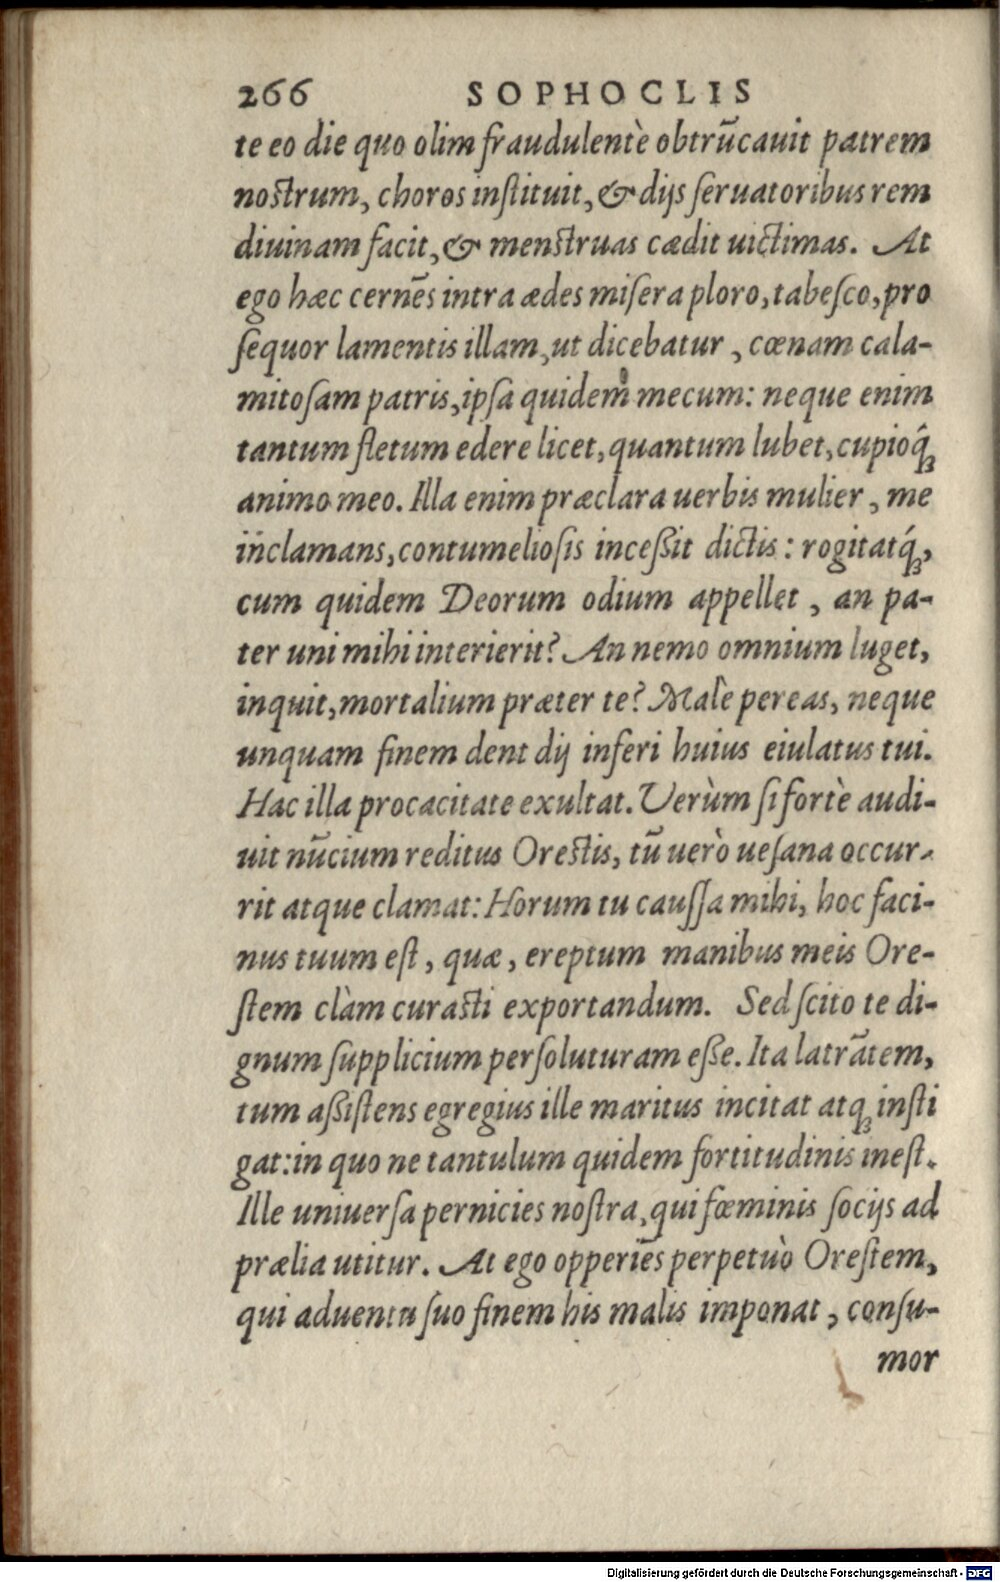 266 SOPHOCLIS
te eo die quo olim fraudulentè obtrũcauit patrem
nostrum, choros instituit, & dijs seruatoribus rem
diuinam facit, & menstruas cædit uictimas. At
ego hæc cernẽs intra ædes misera ploro, tabesco, pro
sequor lamentis illam, ut dicebatur, cœnam cala-
mitosam patris, ipsa quidem mecum: neque enim
tantum fletum edere licet, quantum lubet, cupioq́ꝫ
animo meo. Illa enim præclara uerbis mulier, me
inclamans, contumeliosis inceßit dictis: rogitatq́ꝫ,
cum quidem Deorum odium appellet, an pa-
ter uni mihi interierit? An nemo omnium luget,
inquit, mortalium præter te? Malè pereas, neque
unquam finem dent dij inferi huius eiulatus tui.
Hac illa procacitate exultat. Verùm si fortè audi-
uit nũcium reditus Orestis, tũ uerò uesana occur-
rit atque clamat: Horum tu caussa mihi, hoc faci-
nus tuum est, quæ, ereptum manibus meis Ore-
stem clàm curasti exportandum. Sed scito te di-
gnum supplicium persoluturam eße. Ita latrãtem,
tum aßistens egregius ille maritus incitat atqꝫ insti
gat: in quo ne tantulum quidem fortitudinis inest.
Ille uniuersa pernicies nostra, qui fœminis socijs ad
prælia utitur. At ego opperiẽs perpetuò Orestem,
qui aduentu suo finem his malis imponat, consu-
mor
Digitalisierung gefördert durch die Deutsche Forschungsgemeinschaft - DFG